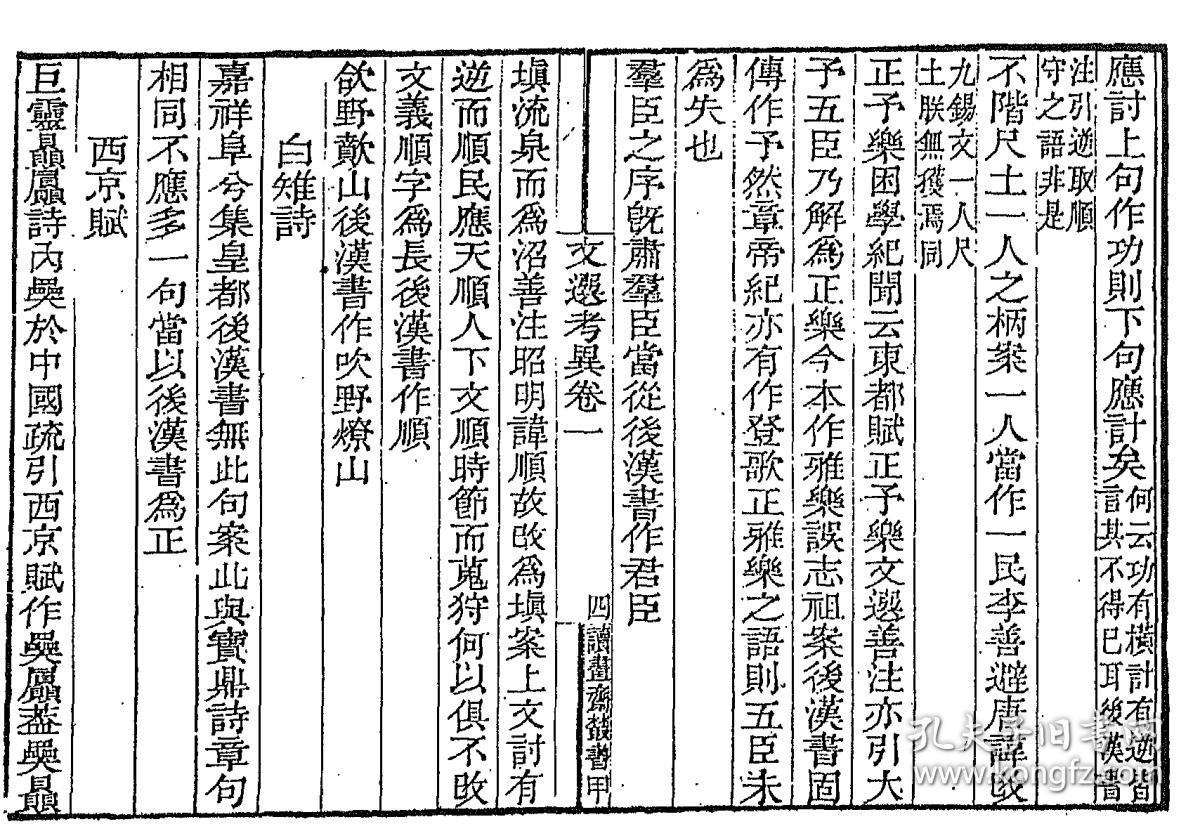 應討上句作功則下句應計矣何云功有橫計有逆皆言其不得已耳後漢書
注引逆取順守之語非是
不階尺土一人之柄案一人當作一民李善避唐諱改
九錫文一人尺土朕無獲焉同
正予樂困學紀聞云東都賦正予樂文選善注亦引大
予五臣乃解為正樂今本作雅樂誤志祖案後漢書固
傳作予然章帝紀亦有作登歌正雅樂之語則五臣未
為失也
羣臣之序旣肅羣臣當從後漢書作君臣
文選考異卷一
四
讀畫齋叢書甲
塡流泉而為沼善注昭明諱順故改為塡案上文討有
逆而順民應天順人下文順時節而蒐狩何以俱不改
文義順字為長後漢書作順
欱野歕山後漢書作吹野燎山
白雉詩
嘉祥阜兮集皇都後漢書無此句案此與寶鼎詩章句
相同不應多一句當以後漢書為正
西京賦
巨靈贔屭詩內奰於中國疏引西京賦作奰屭葢奰贔
孔夫子旧书网
www.kongfz.com